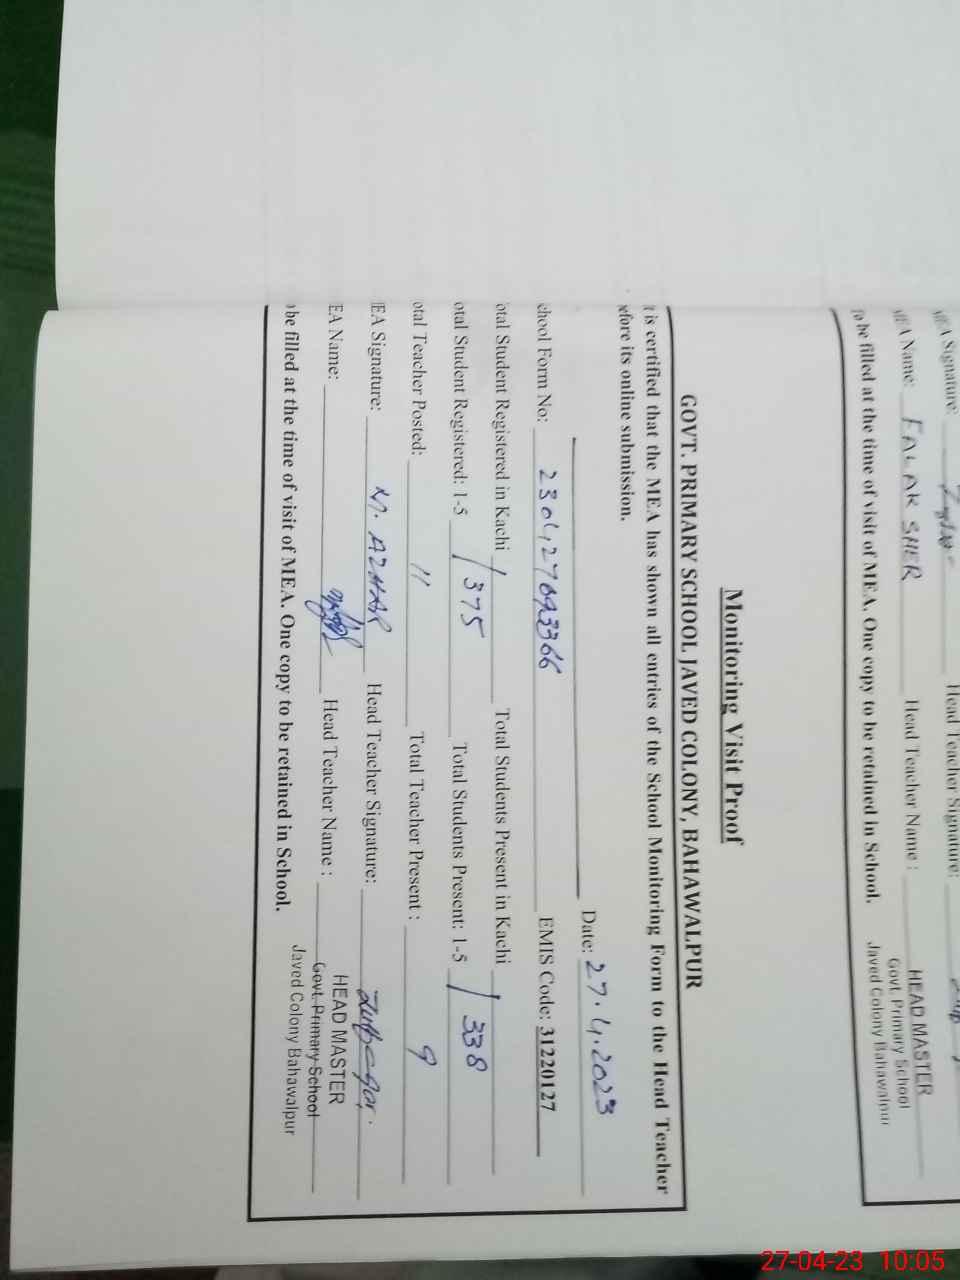 MEA Signature: Head Teacher Signature:
MEA Name: FALAK SHER Head Teacher Name :
HEAD MASTER
Govt. Primary School
Javed Colony Bahawalpur
To be filled at the time of visit of MEA. One copy to be retained in School.
Monitoring Visit Proof
GOVT. PRIMARY SCHOOL JAVED COLONY, BAHAWALPUR
t is certified that the MEA has shown all entries of the School Monitoring Form to the Head Teacher
efore its online submission.
Date: 27.4.2023
chool Form No: EMIS Code: 31220127
otal Student Registered in Kachi Total Students Present in Kachi
otal Student Registered: 1-5 375 Total Students Present: 1-5 338
otal Teacher Posted: 11 Total Teacher Present : 9
EA Signature: M. AZHAR Head Teacher Signature:
EA Name: Head Teacher Name :
HEAD MASTER
Govt. Primary School
Javed Colony Bahawalpur
be filled at the time of visit of MEA. One copy to be retained in School.
27-04-23 10:05